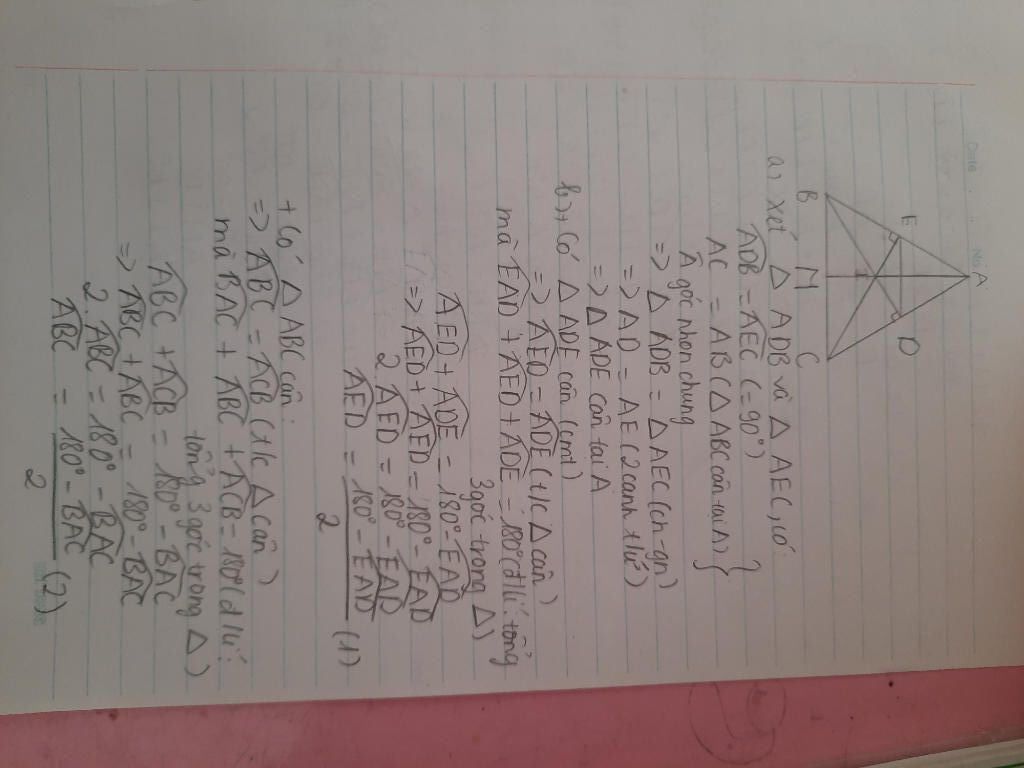 Date No.
A
E D
B M C
a, xét △ ADB và △ AEC, có:
ADB = AEC (= 90°)
AC = AB (△ ABC cân tại A) }
Â góc nhọn chung
=> △ ADB = △ AEC (ch-gn)
=> AD = AE (2 cạnh t/ứ)
=> △ ADE cân tại A
b, + Có △ ADE cân (cmt)
=> AED = ADE (t/c △ cân)
mà EAD + AED + ADE = 180° (đ lí: tổng
3 góc trong △)
AED + ADE = 180° - EAD
=> AED + AED = 180° - EAD
2 AED = 180° - EAD
AED = 180° - EAD (1)
2
+ Có △ ABC cân:
=> ABC = ACB (t/c △ cân)
mà BAC + ABC + ACB = 180° (đ lí:
tổng 3 góc trong △)
ABC + ACB = 180° - BAC
=> ABC + ABC = 180° - BAC
2. ABC = 180° - BAC
ABC = 180° - BAC (2)
2